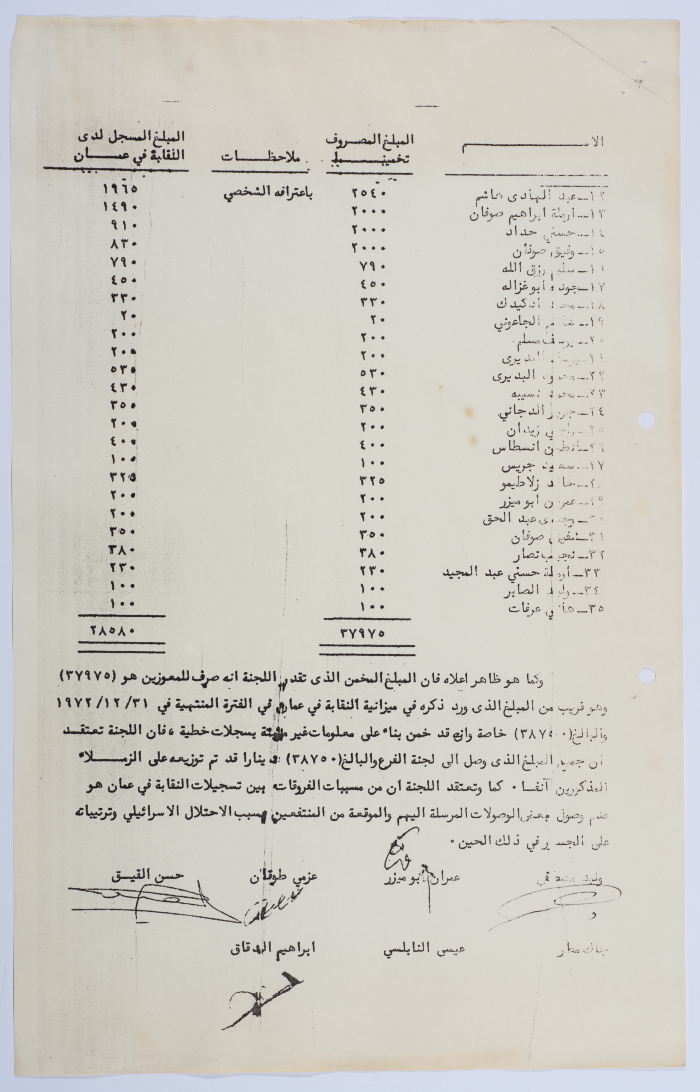 الاســـــــــم المبلغ المصروف ملاحظـــات المبلغ المسجل لدى
تخمينـــــا النقابة في عمـــان
١٢ـ عبد الهادى هاشم ٢٥٤٠ باعترافه الشخصي ١٩٦٥
١٣ـ أرملة ابراهيم صوفان ٢٠٠٠ ١٤٩٠
١٤ـ حسني حداد ٢٠٠٠ ٩١٠
١٥ـ وفيق صوفان ٢٠٠٠ ٨٣٠
١٦ـ سليم رزق الله ٧٩٠ ٧٩٠
١٧ـ جوده أبو غزاله ٤٥٠ ٤٥٠
١٨ـ محمد ادكيدك ٣٣٠ ٣٣٠
١٩ـ الجاعوني ٢٠ ٢٠
٢٠ـ يوسف مسلم ٢٠٠ ٢٠٠
٢١ـ البديرى ٢٠٠ ٢٠٠
٢٢ـ محمود البديرى ٥٣٠ ٥٣٠
٢٣ـ محمد نسيبه ٤٣٠ ٤٣٠
٢٤ـ الدجاني ٣٥٠ ٣٥٠
٢٥ـ زيدان ٢٠٠ ٢٠٠
٢٦ـ انسطاس ٤٠٠ ٤٠٠
٢٧ـ سعيد جريس ١٠٠ ١٠٠
٢٨ـ خالد زلاطيمو ٣٢٥ ٣٢٥
٢٩ـ عمران ابو ميزر ٢٠٠ ٢٠٠
٣٠ـ عبد الحق ٢٠٠ ٢٠٠
٣١ـ شفيق صوفان ٣٥٠ ٣٥٠
٣٢ـ نجيب نصار ٣٨٠ ٣٨٠
٣٣ـ أرملة حسني عبد المجيد ٢٣٠ ٢٣٠
٣٤ـ وليد الصابر ١٠٠ ١٠٠
٣٥ـ هاني عرفات ١٠٠ ١٠٠
٣٧٩٧٥ ٢٨٥٨٠
وكما هو ظاهر اعلاه فان المبلغ المخمن الذى تقدر اللجنة انه صرف للمعوزين هو (٣٧٩٧٥)
وهو قريب من المبلغ الذى ورد ذكره في ميزانية النقابة في عمان في الفترة المنتهية في ١٩٧٢/١٢/٣١
والبالغ (٣٨٧٥٠) خاصة وانه قد خمن بناء على معلومات غير مسجلات خطية ، فان اللجنة تعتقـد
ان جميع المبلغ الذى وصل الى لجنة الفرع والبالغ (٣٨٧٥٠) دينارا قد تم توزيعه على الزمـــلاء
المذكورين آنفا . كما وتعتقد اللجنة ان من مسببات الفروقات بين تسجيلات النقابة في عمان هو
عدم وصول بعض الوصولات المرسلة اليهم والموقعة من المنتفعين بسبب الاحتلال الاسرائيلي وترتيباته
على الجسر في ذلك الحين .
وليد عمران ابو ميزر عزمي طوقان حسن القيـق
عيسى النابلسي ابراهيم الدقاق